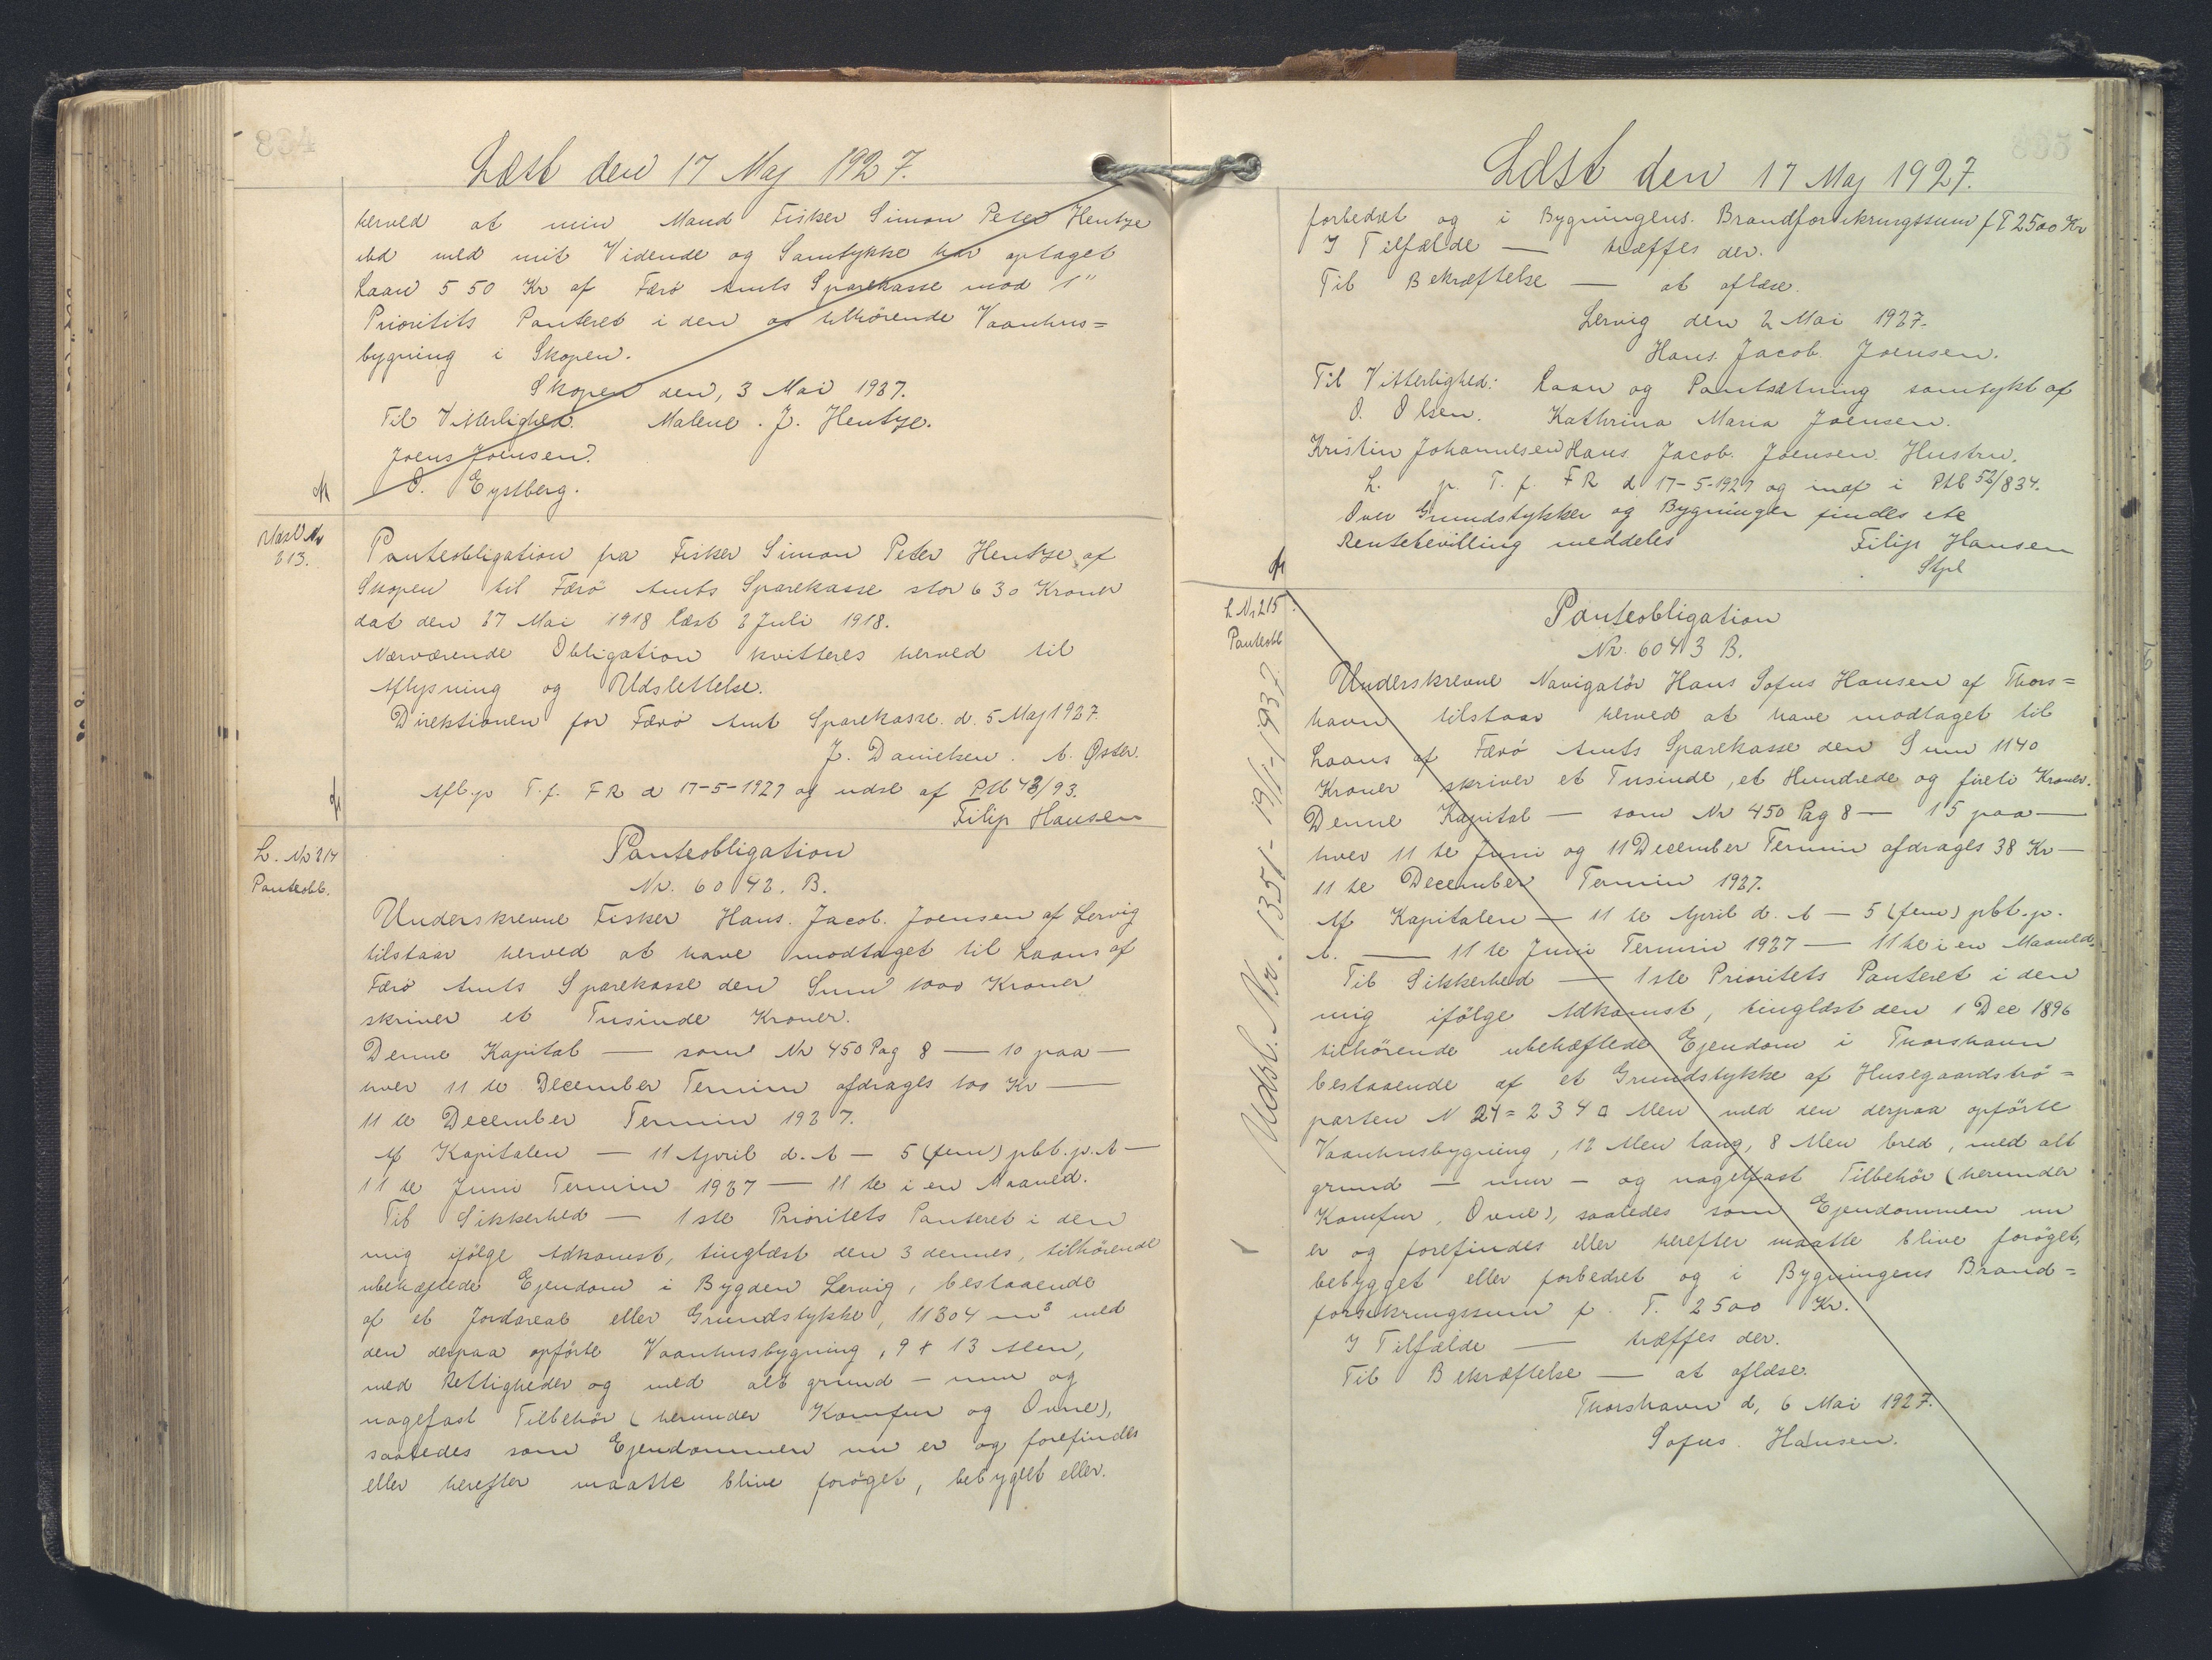 834
Læst den 17 Maj 1927.
herved at min Mand Fisker Simon Peter Hentze
ibd med mit Vidende og Samtykke har optaget
Laan 550 Kr af Færø Amts Sparekasse mod 1"
Prioritets Panteret i den os tilhørende Vaanhus=
bygning i Skopen.
Skopen den, 3 Mai 1927.
Til Vitterlighed. Malene. J. Hentze.
Joens Joensen.
O. Eystberg.
213.
Panteobligation fra Fisker Simon Peter Hentze af
Skopen til Færø Amts Sparekasse stor 630 Kroner
dat den 27 Mai 1918 læst 2 Juli 1918.
Nærværende Obligation kvitteres herved til
Aflysning og Udslettelse.
Direktionen for Færø Amt Sparekasse. d. 5 Maj 1927.
J. Danielsen. A. Øster.
Afl. p T. f. FR d 17-5-1927 og udsl af Ptb 43/93.
Filip Hansen
L. No 214
Panteobl.
Panteobligation
Nr. 6042. B.
Underskrevne Fisker Hans. Jacob. Joensen af Lervig
tilstaar herved at have modtaget til Laans af
Færø Amts Sparekasse den Sum 1000 Kroner
skriver et Tusinde Kroner.
Denne Kapital — som Nr 450 Pag 8 — 10 paa —
hver 11 te December Termin afdrages 100 Kr —
11 te December Termin 1927.
Af Kapitalen — 11 April d. A — 5 (fem) pCt. p. A —
11 te Juni Termin 1927 — 11 te i en Maaned.
Til Sikkerhed — 1ste Prioritets Panteret i den
mig ifølge Adkomst, tinglæst den 3 dennes, tilhørende
ubehæftede Ejendom i Bygden Lervig, bestaaende
af et Jordareal eller Grundstykke, 11304 m² med
den derpaa opførte Vaanhusbygning, 9 + 13 Alen,
med Rettigheder og med alt grund - mur og
nagefast Tilbehør (herunder Komfur og Ovne),
saaledes som Ejendommen nu er og forefindes
eller herefter maatte blive forøget, bebygget eller.
835
Læst den 17 Maj 1927.
forbedret og i Bygningens. Brandforsikringssum f T 2500 Kr
I Tilfælde — træffes der.
Til Bekræftelse — at aflæse.
Lervig den 2 Mai 1927.
Hans. Jacob. Joensen.
Til Vitterlighed: Laan og Pantsætning samtykt af
O. Olsen. Kathrina Maria Joensen.
Kristin Johannesen Hans. Jacob. Joensen. Hustru.
L. p. T. f. FR d 17-5-1927 og indf i Ptb 52/834.
Over Grundstykker og Bygninger findes ete
Rentebevilling meddeles
Filip Hansen
Stpl
L Nr 215
Panteobl
Udsl. Nr. 1351 - 19/1-1937.
Panteobligation
Nr. 6043 B.
Underskrevne Navigatør Hans Sofus Hansen af Thors=
havn tilstaar herved at have modtaget til
Laans af Færø Amts Sparekasse den Sum 1140
Kroner skriver et Tusinde, et Hundrede og firti Kroner.
Denne Kapital — som Nr 450 Pag 8 — 15 paa —
hver 11 te Juni og 11 December Termin afdrages 38 Kr —
11 te December Termin 1927.
Af Kapitalen — 11 te April d. A — 5 (fem) pCt. p.
A. — 11 te Juni Termin 1927 — 11 te i en Maaned.
Til Sikkerhed — 1ste Prioritets Panteret i den
mig ifølge Adkomst, tinglæst den 1 Dec 1896
tilhørende ubehæftede Ejendom i Thorshavn
bestaaende af et Grundstykke af Husegaardstrø=
parten N 24 = 234 □ Alen med den derpaa opførte
Vaanhusbygning, 12 Alen lang, 8 Alen bred, med alt
grund - mur - og nagelfast Tilbehør (herunder
Komfur, Ovne), saaledes som Ejendommen nu
er og forefindes eller herefter maatte blive forøget,
bebygget eller forbedret og i Bygningens Brand=
forsikringssum f. T. 2500 Kr.
I Tilfælde — træffes der.
Til Bekræftelse — at aflæse.
Thorshavn d, 6 Mai 1927.
Sofus. Hansen.